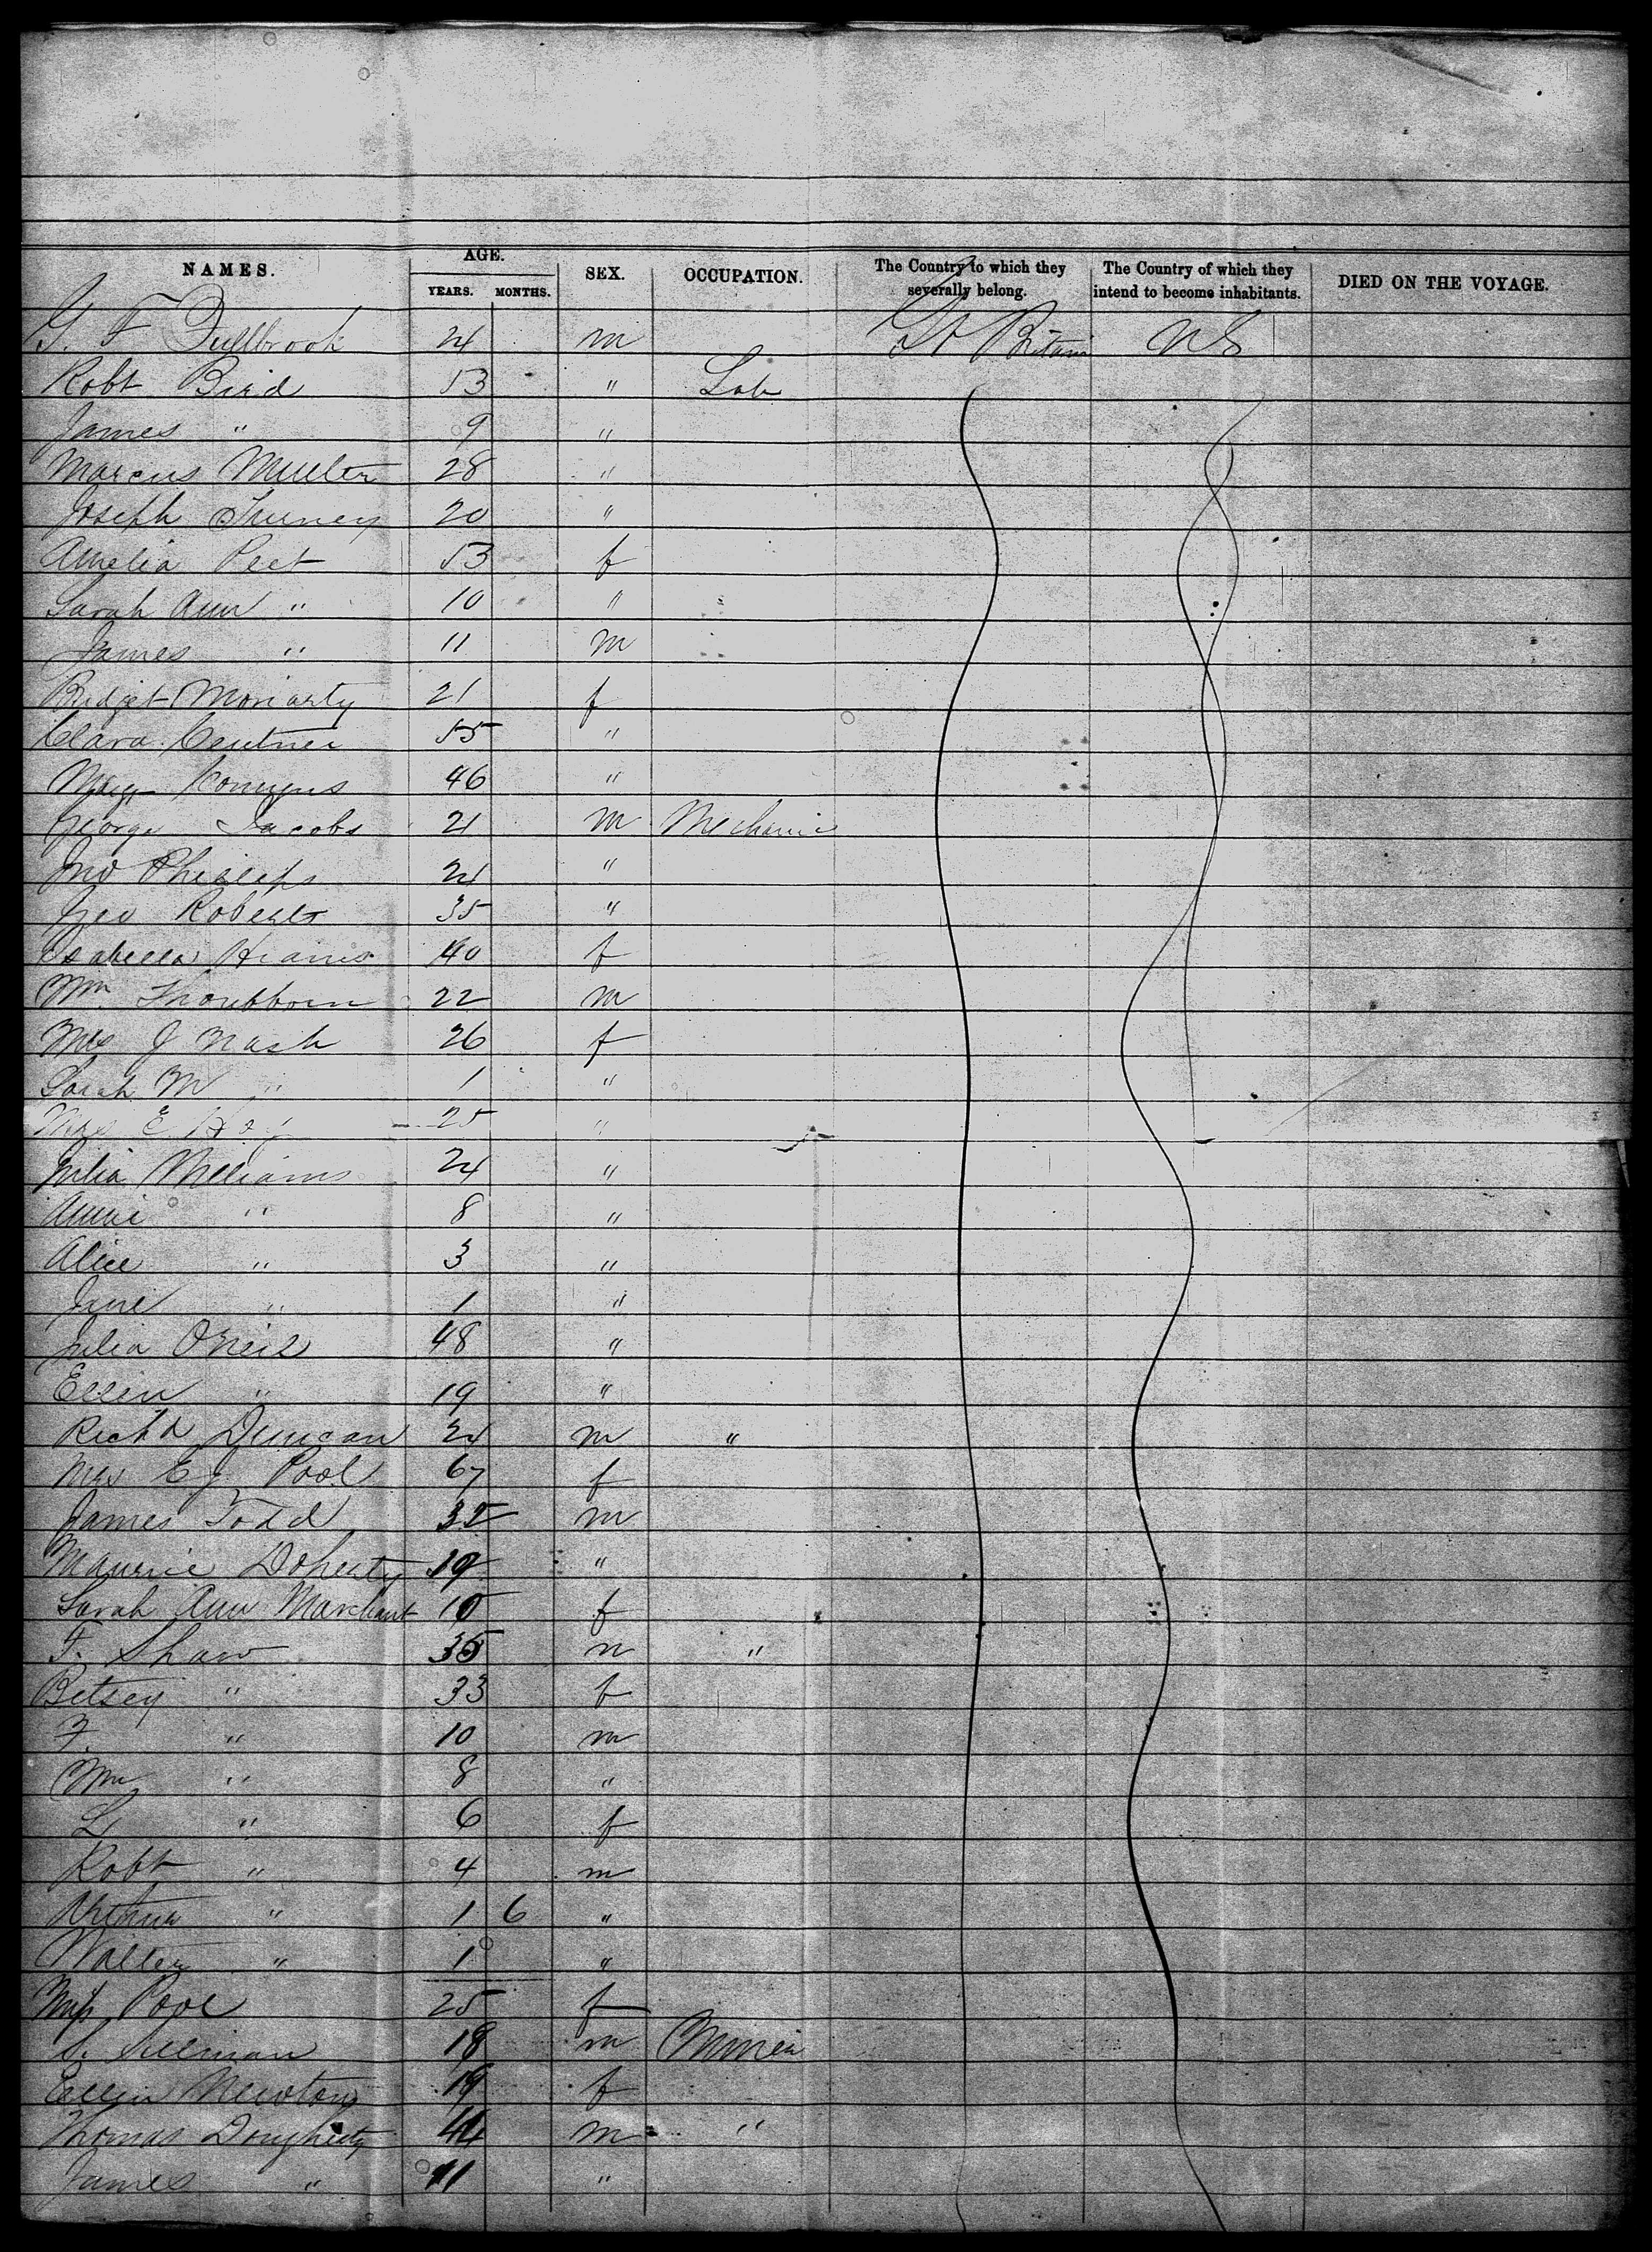 NAMES. AGE. YEARS. MONTHS. SEX. OCCUPATION. The Country to which they severally belong. The Country of which they intend to become inhabitants. DIED ON THE VOYAGE.
G. F Fullbrook 24 m Gt Britain US
Robt Bird 53 " Lab
James " 9 "
Marcus Muller 28 "
Joseph 20 "
Amelia Peet 53 f
Sarah Ann " 10 "
James " 11 m
Bridget Moriarty 21 f
Clara Centner 55 "
46 "
George Jacobs 21 m Mechanic
Jno Phillips 24 "
Geo Roberts 35 "
Isabella 40 f
Wm 22 m
Mrs J Nash 26 f
Sarah M " 1 "
Mrs E. 25 "
Julia Williams 24 "
Annie " 8 "
Alice " 3 "
Jane " 1 "
Julia O'Neil 48 "
Ellen " 19 "
Richd Duncan 24 m "
Mrs E J Pool 67 f
James Todd 32 m
Maurice Doherty 19 "
Sarah Ann Marchant 10 f
F. Shaw 35 m "
Betsey " 33 f
F. " 10 m
Wm " 8 "
L " 6 f
Robt " 4 m
Arthur " 1 6 "
Walter " 1 "
Miss Pool 25 f
S. Sillman 18 m Miner
Ellen Newton 19 f
Thomas Dougherty 44 m "
James " 11 "